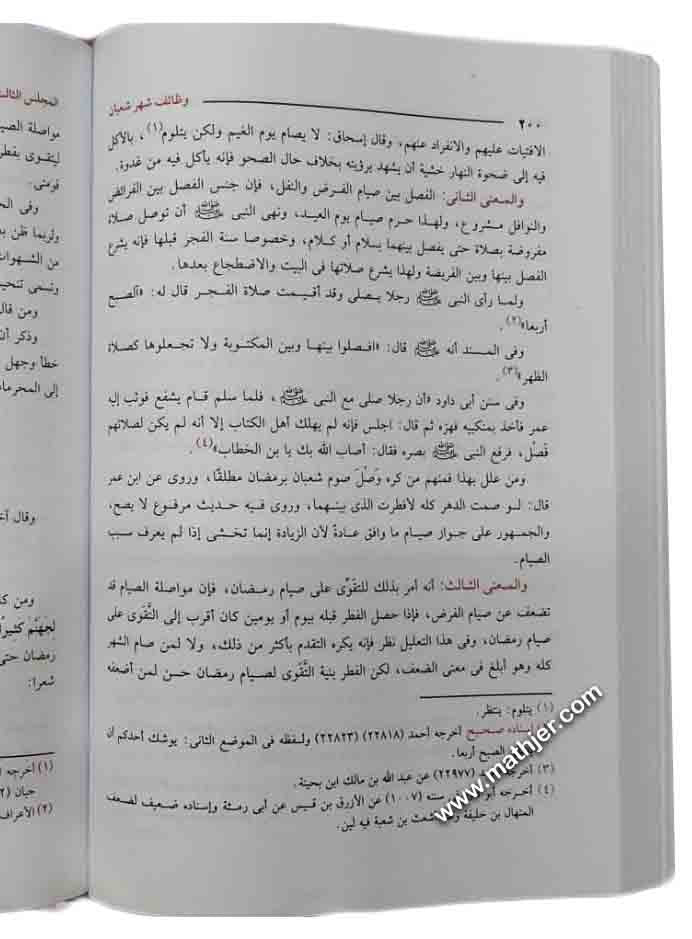 ٢٠٠ وظائف شهر شعبان
الافتيات عليهم والانفراد عنهم، وقال إسحاق: لا يصام يوم الغيم ولكن يتلوم(١)، بالأكل
فيه إلى ضحوة النهار خشية أن يشهد برؤيته بخلاف حال الصحو فإنه يأكل فيه من غدوة.
والمعنى الثانى: الفصل بين صيام الفرض والنفل، فإن جنس الفصل بين الفرائض
والنوافل مشروع، ولهذا حرم صيام يوم العيد، ونهى النبى ﷺ أن توصل صلاة
مفروضة بصلاة حتى يفصل بينهما بسلام أو كلام، وخصوصا سنة الفجر قبلها فإنه يشرع
الفصل بينها وبين الفريضة ولهذا يشرع صلاتها فى البيت والاضطجاع بعدها.
ولما رأى النبى ﷺ رجلا يصلى وقد أقيمت صلاة الفجر قال له: «آلصبح
أربعا»(٢).
وفى المسند أنه ﷺ قال: «افصلوا بينها وبين المكتوبة ولا تجعلوها كصلاة
الظهر»(٣).
وفى سنن أبى داود «أن رجلا صلى مع النبى ﷺ، فلما سلم قام يشفع فوثب إليه
عمر فأخذ بمنكبيه فهزه ثم قال: اجلس فإنه لم يهلك أهل الكتاب إلا أنه لم يكن لصلاتهم
فَصْل، فرفع النبى ﷺ بصره فقال: أصاب الله بك يا بن الخطاب»(٤).
ومن علل بهذا فمنهم من كره وَصْلَ صوم شعبان برمضان مطلقًا، وروى عن ابن عمر
قال: لو صمت الدهر كله لأفطرت الذى بينهما، وروى فيه حديث مرفوع لا يصح،
والجمهور على جواز صيام ما وافق عادةً لأن الزيادة إنما تخشى إذا لم يعرف سبب
الصيام.
والمعنى الثالث: أنه أمر بذلك للتقوِّى على صيام رمضان، فإن مواصلة الصيام قد
تضعف عن صيام الفرض، فإذا حصل الفطر قبله بيوم أو يومين كان أقرب إلى التَّقَوى على
صيام رمضان، وفى هذا التعليل نظر فإنه يكره التقدم بأكثر من ذلك، ولا لمن صام الشهر
كله وهو أبلغ فى معنى الضعف، لكن الفطر بنية التَّقَوى لصيام رمضان حسن لمن أضعفه
(١) يتلوم: ينتظر.
إسناده صحيح أخرجه أحمد (٢٢٨١٨) (٢٢٨٢٣) ولفظه فى الموضع الثانى: يوشك أحدكم أن
الصبح أربعا.
(٣) أخرجه (٢٢٩٧٧) عن عبد الله بن مالك ابن بحينة.
(٤) أخرجه أبو فى سننه (١٠٠٧) عن الأزرق بن قيس عن أبى رمثة وإسناده ضعيف لضعف
المنهال بن خليفة بن شعبة فيه لين.
www.mathjer.com
المجلس الثالث
مواصلة الصيا
ليتقوى بفطر
قومتى.
وفى الح
ولربما ظن
من الشهوات
وتسمى تنحي
ومن قال
وذكر أن
خطأ وجهل
إلى المحرما
وقال أخ
ومن كا
لِجَهَنَّم كثيرًا
رمضان حتى
شعرا:
(١) أخرجه
حبان (٢
(٢) الأعراف